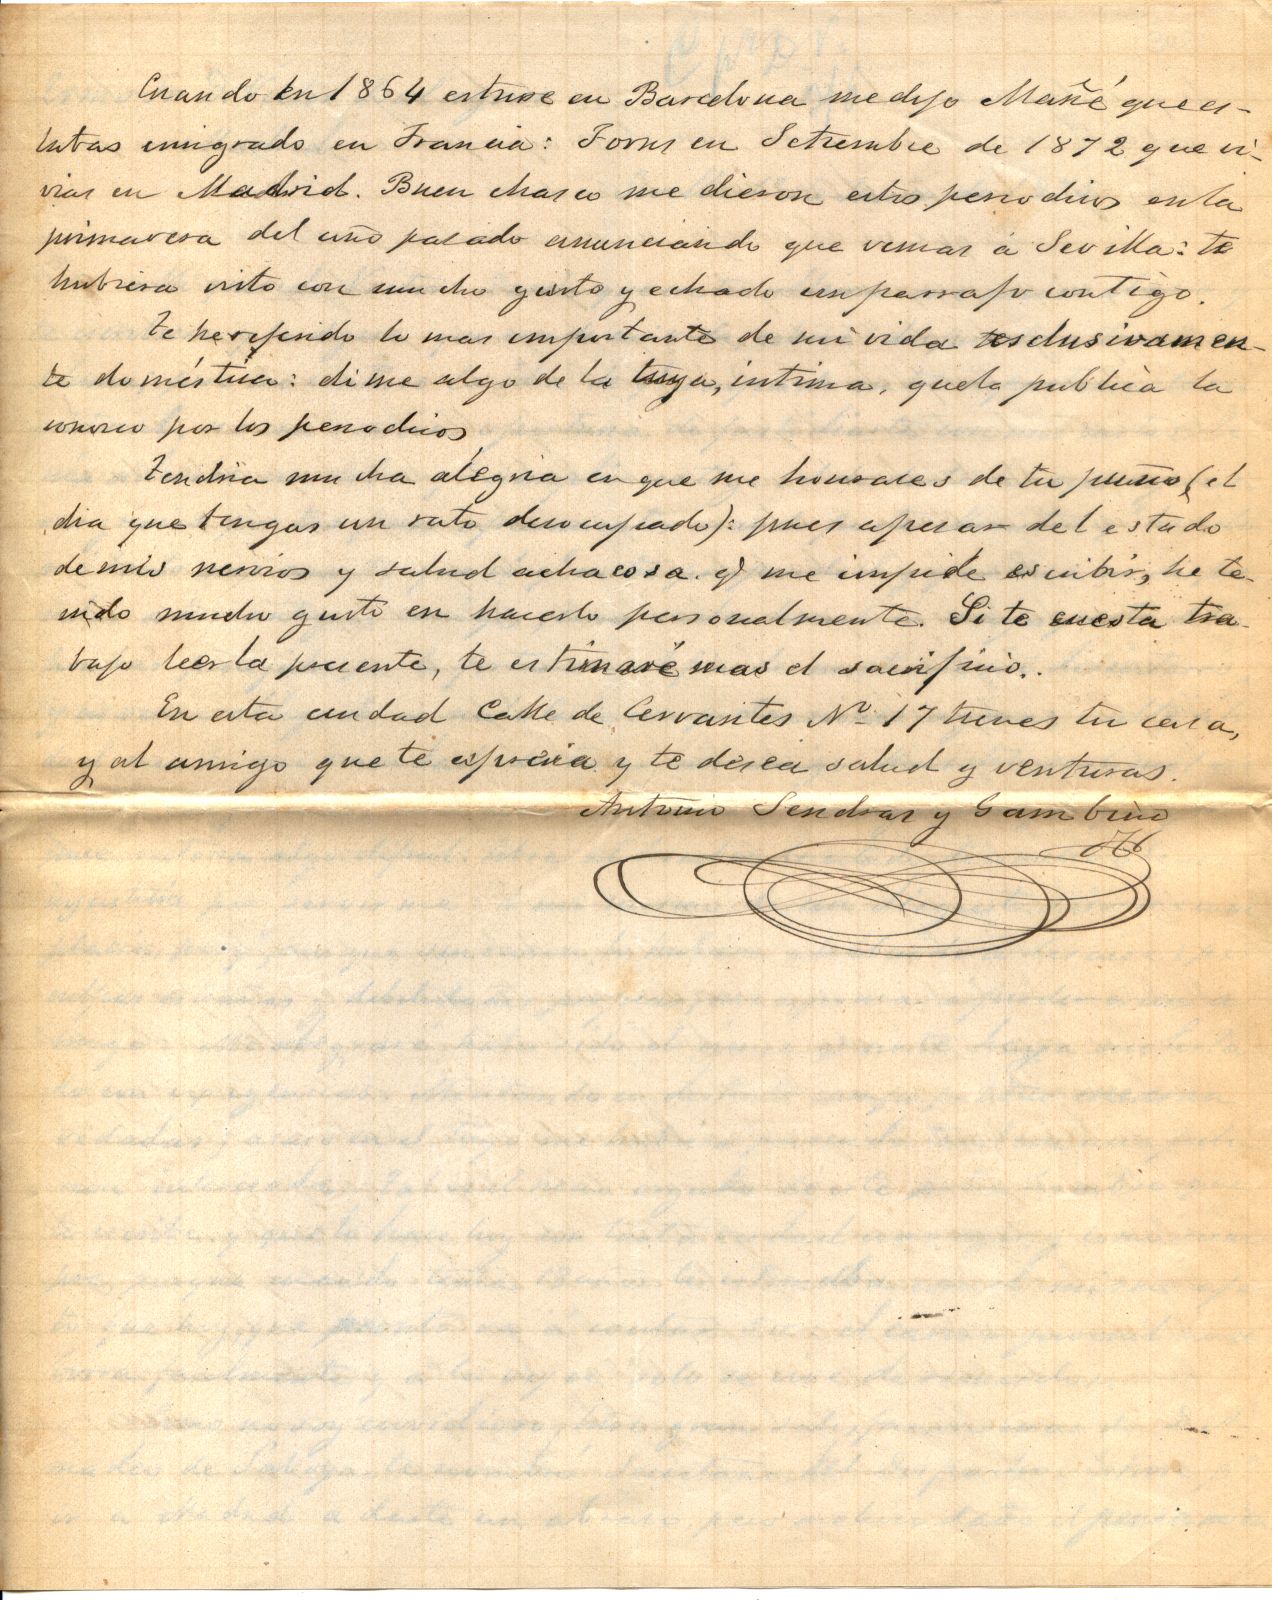 Cuando en 1864 estuve en Barcelona me dijo Mañé que es-
tabas emigrado en Francia: Forns en Setiembre de 1872 que vi-
vias en Madrid. Buen chasco me dieron estos periodicos en la
primavera del año pasado anunciando que venias á Sevilla: te
hubiera visto con mucho gusto y echado un parrafo contigo.
Te he referido lo mas importante de mi vida esclusivamen-
te doméstica: dime algo de la tuya, intima, que la publica la
conozco por los periodicos
Tendria mucha alegria en que me honrases de tu puño (el
dia que tengas un rato desocupado): pues apesar del estado
de mis nervios y salud achacosa q) me impide escribir, he te-
nido mucho gusto en hacerlo personalmente. Si te cuesta tra-
bajo leer la presente, te estimaré mas el sacrificio..
En esta ciudad Calle de Cervantes Nº 17 tienes tu casa,
y al amigo que te aprecia y te desea salud y venturas.
Antonio Sendras y Gambino